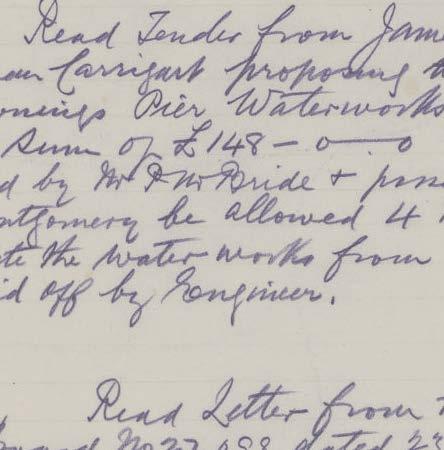 Read Tender from Jame
ean Carrigart proposing t
onings Pier Waterworks
Sum of £148-0-0
d by Mr P McBride + pass
ontgomery be allowed 4
te the water works from
id off by Engineer.
Read Letter from
dated 23